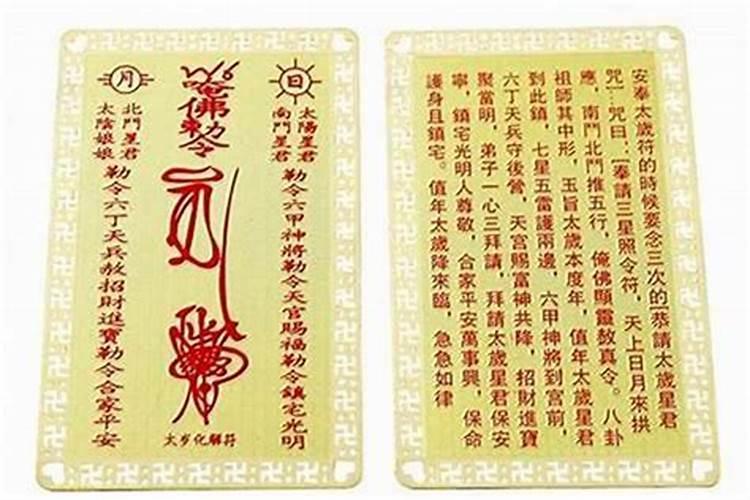 日
太陽星君
南鬥星君
勒令六甲神將勒令天官賜福勒令鎮宅光明
唵佛勅令
太岁化解符
月
北鬥星君
太陰娘娘
勒令六丁天兵赦招財進寶勒令合家平安
安奉太歲符的時候要念三次的[恭請太歲星君
咒]…咒曰:[奉請三星照令符，天上日月來拱
應，南鬥北鬥推五行，俺佛顯靈敖真令。八卦
祖師其中形，玉旨太歲本度年，值年太歲星君
到此鎮，七星五雷護兩邊，六甲神將到宮前，
六丁天兵守後營，天宮賜富神共降，招財進寶
聚當明，弟子一心三拜請，拜請太歲星君保安
寧，鎮宅光明人尊敬，合家平安萬事興，保命
護身且鎮宅。值年太歲降來臨，急急如律